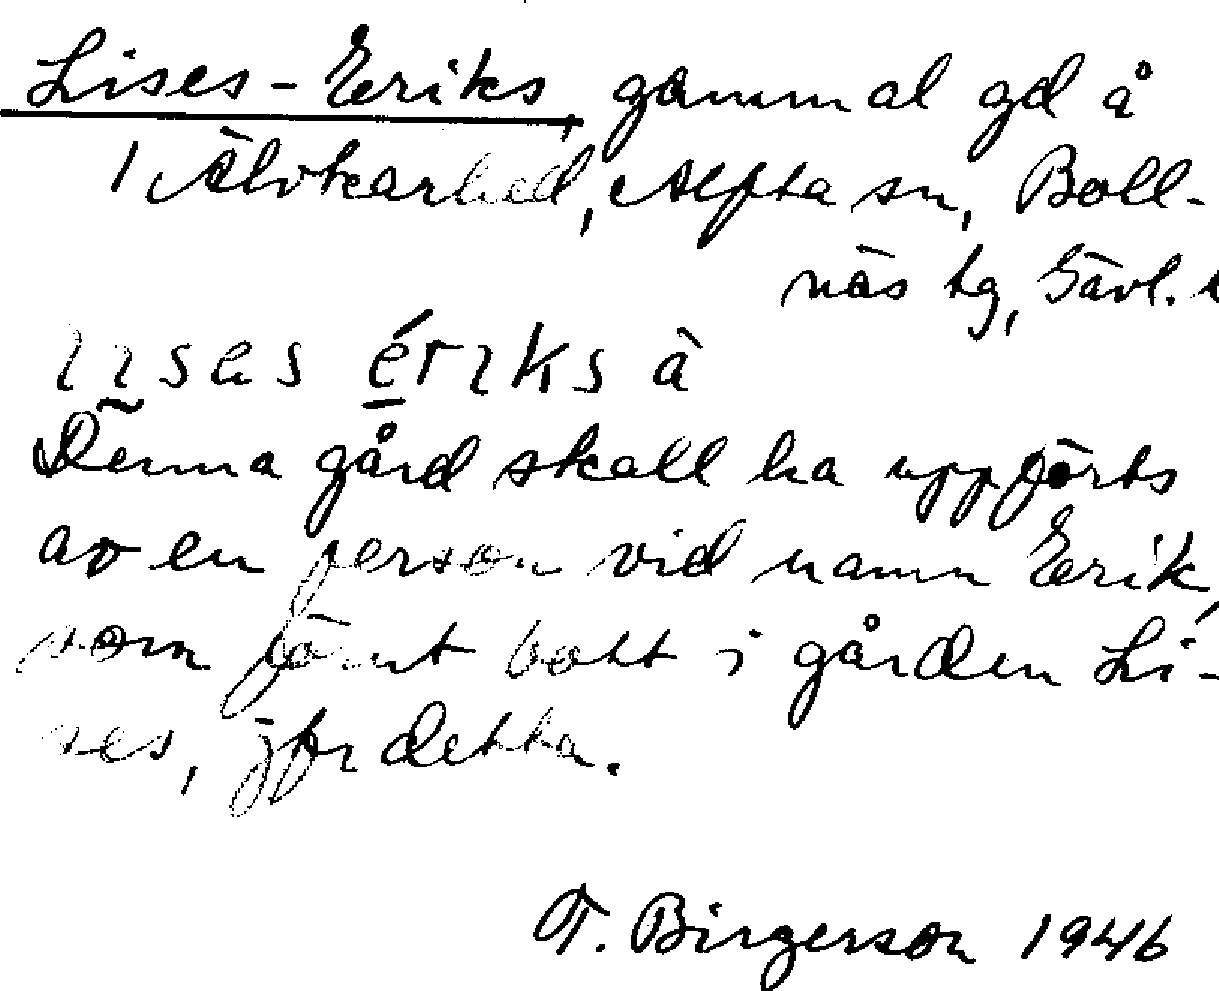 Lises-Eriks, gammal gd å
1 Älvkarhed, Alfta sn, Boll-
näs tg, Gävl. l
lisas érıks à
Denna gård skall ha uppförts
av en person vid namn Erik,
som förut bott i gården Li-
ses, jfr detta.
T. Birgerson 1946